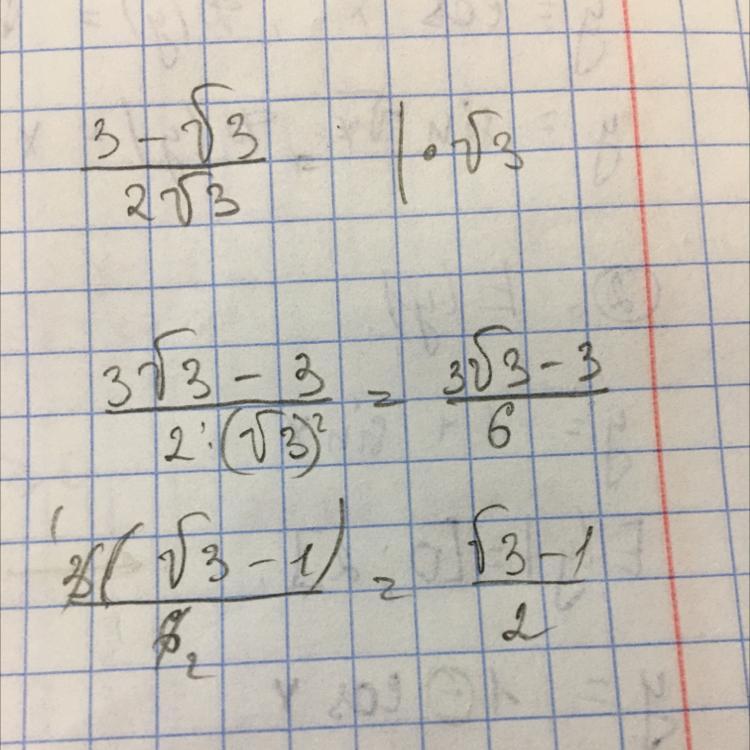 (3 - √3) / (2√3) = | • √3
(3√3 - 3) / (2 · (√3)²) = (3√3 - 3) / 6
3(√3 - 1) / 6 = (√3 - 1) / 2